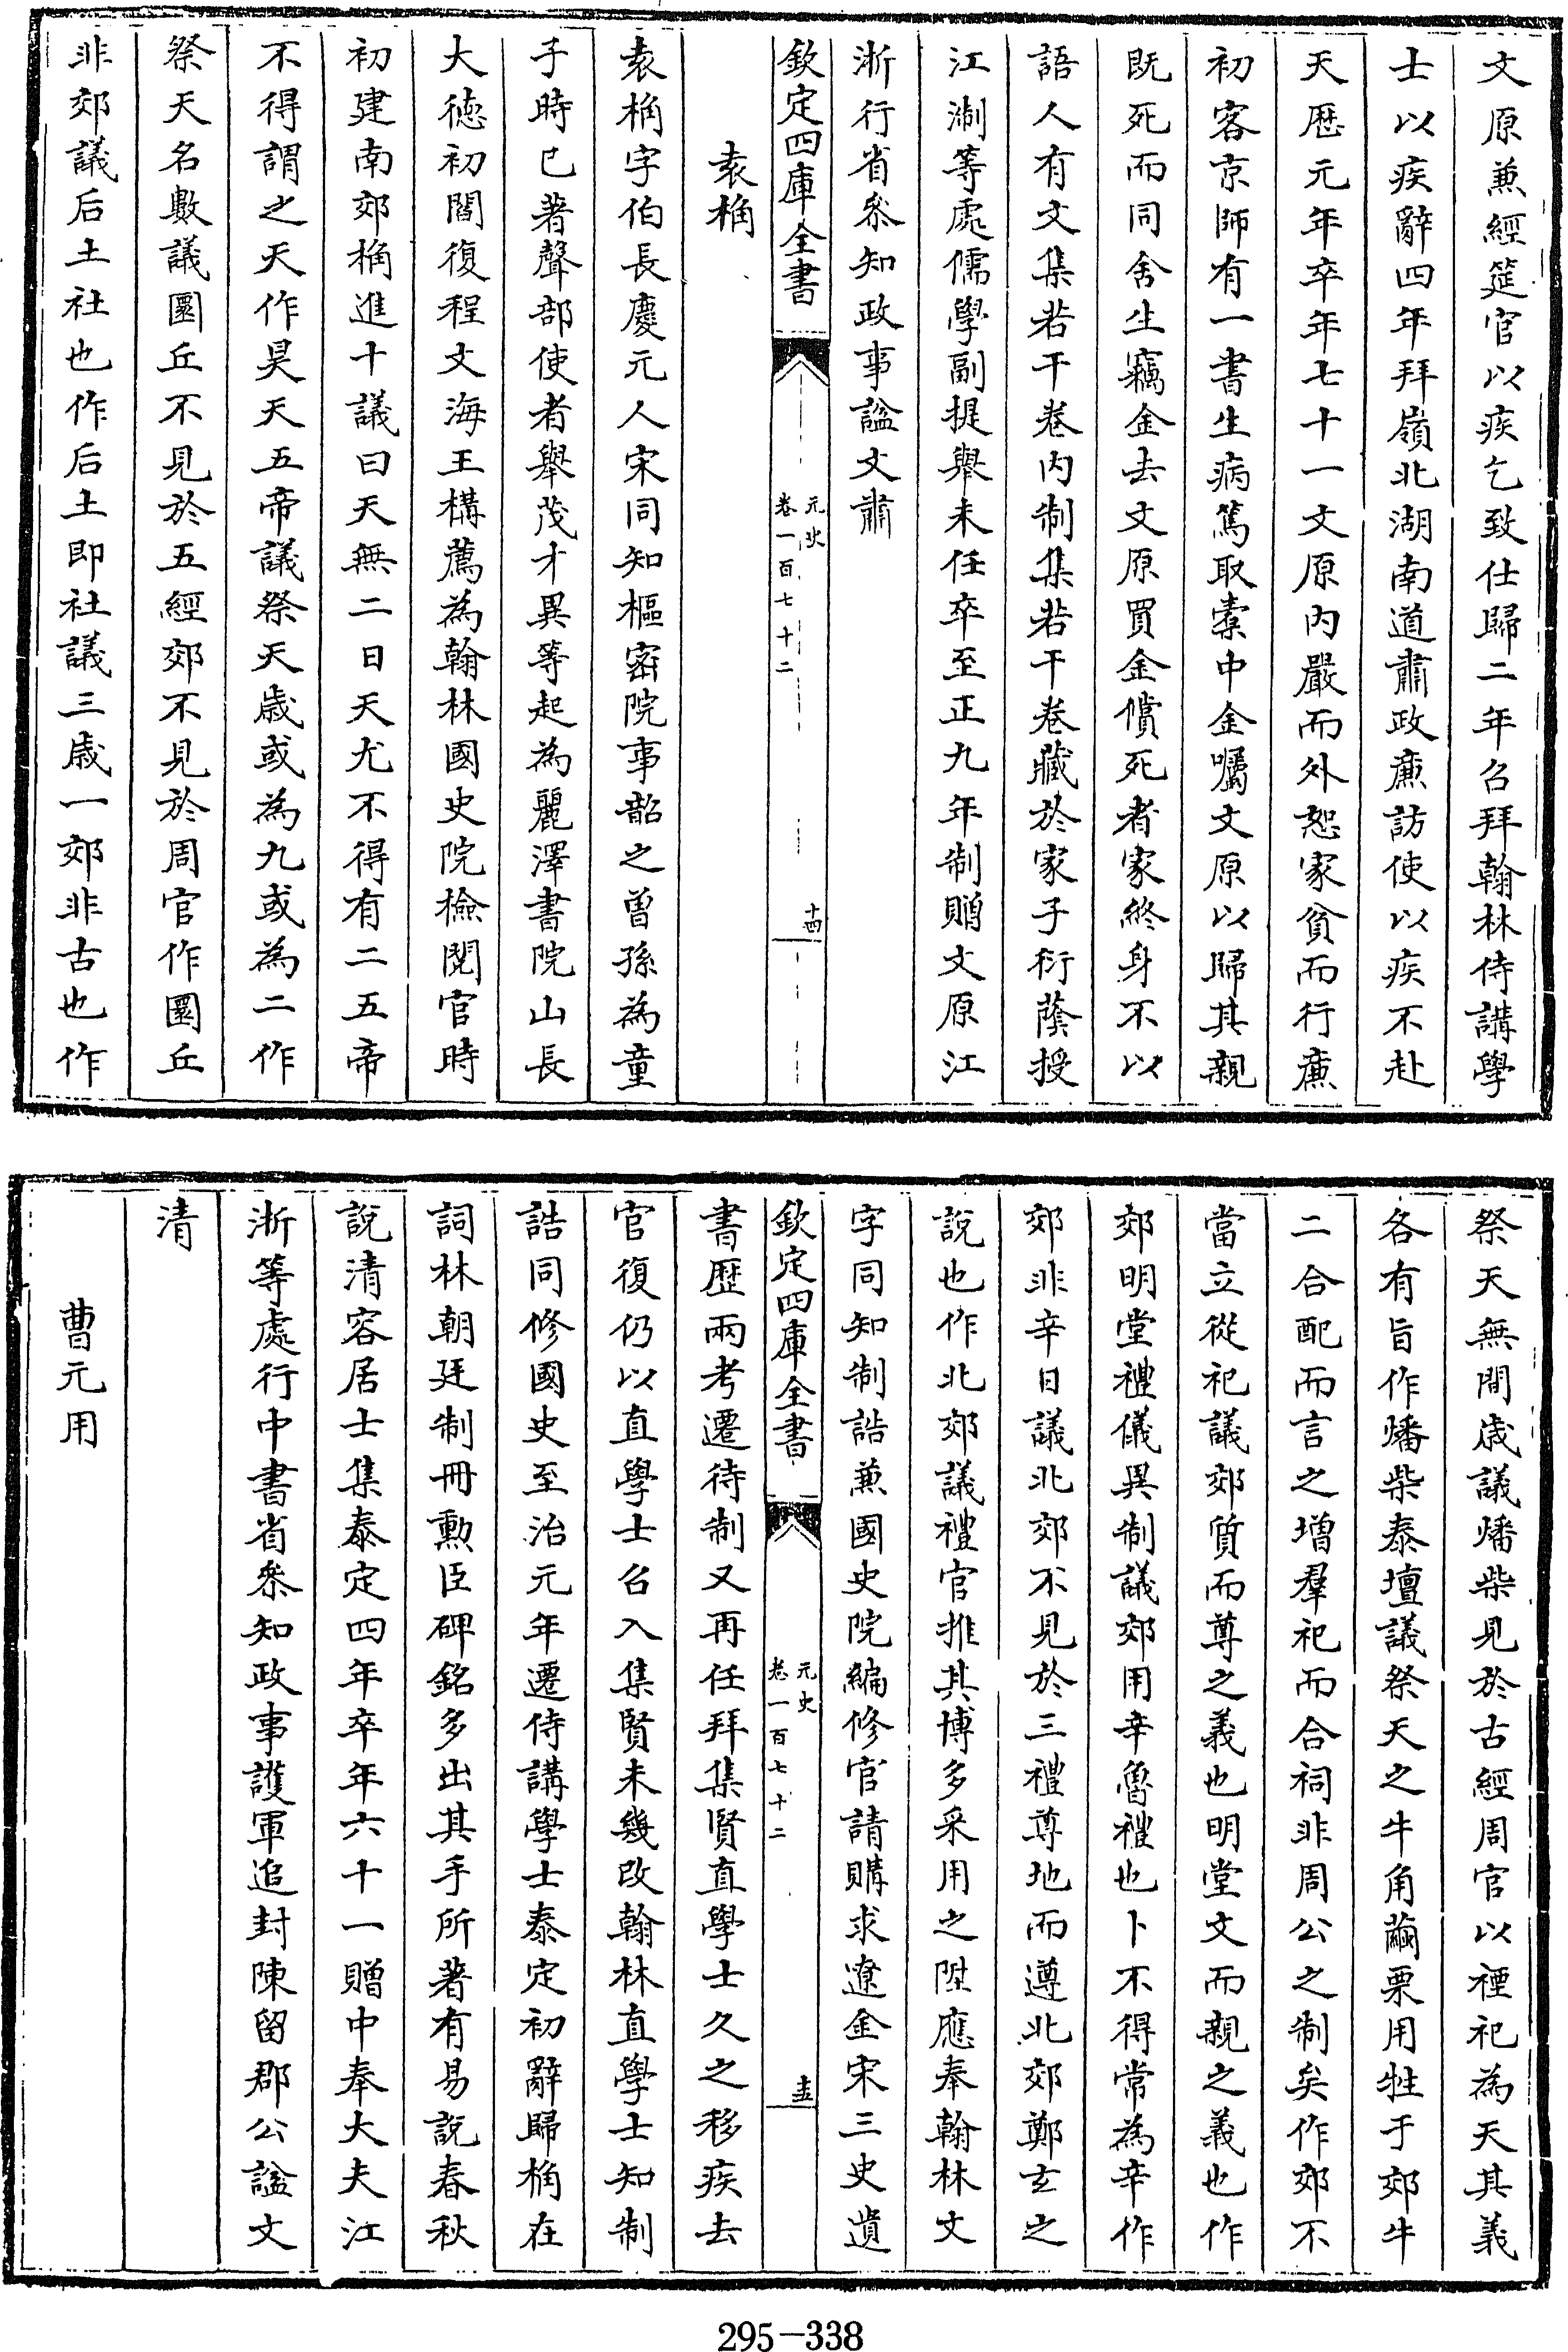 文原兼經筵官以疾乞致仕歸二年召拜翰林侍講學
士以疾辭四年拜嶺北湖南道肅政廉訪使以疾不赴
天歴元年卒年七十一文原内嚴而外恕家貧而行廉
初客京師有一書生病篤取橐中金囑文原以歸其親
既死而同舍生竊金去文原買金償死者家終身不以
語人有文集若干卷内制集若干卷藏於家子衍蔭授
江浙等處儒學副提舉未任卒至正九年制贈文原江
浙行省叅知政事諡文肅
欽定四庫全書
元史
卷一百七十二
十四
袁桷
袁桷字伯長慶元人宋同知樞密院事韶之曾孫為童
子時已著聲部使者舉茂才異等起為麗澤書院山長
大德初閻復程文海王構薦為翰林國史院檢閱官時
初建南郊桷進十議曰天無二日天尤不得有二五帝
不得謂之天作昊天五帝議祭天歳或為九或為二作
祭天名數議圜丘不見於五經郊不見於周官作圜丘
非郊議后土社也作后土即社議三歳一郊非古也作
祭天無間歳議燔柴見於古經周官以禋祀為天其義
各有旨作燔柴泰壇議祭天之牛角繭栗用牲于郊牛
二合配而言之增羣祀而合祠非周公之制矣作郊不
當立從祀議郊質而尊之義也明堂文而親之義也作
郊明堂禮儀異制議郊用辛魯禮也卜不得常為辛作
郊非辛日議北郊不見於三禮尊地而遵北郊鄭玄之
說也作北郊議禮官推其博多采用之陞應奉翰林文
字同知制誥兼國史院編修官請購求遼金宋三史遺
欽定四庫全書
元史
卷一百七十二
十五
書歴兩考遷待制又再任拜集賢直學士久之移疾去
官復仍以直學士召入集賢未幾改翰林直學士知制
誥同修國史至治元年遷侍講學士泰定初辭歸桷在
詞林朝廷制冊勲臣碑銘多出其手所著有易說春秋
說清容居士集泰定四年卒年六十一贈中奉大夫江
浙等處行中書省叅知政事護軍追封陳留郡公諡文
清
曹元用
295-338